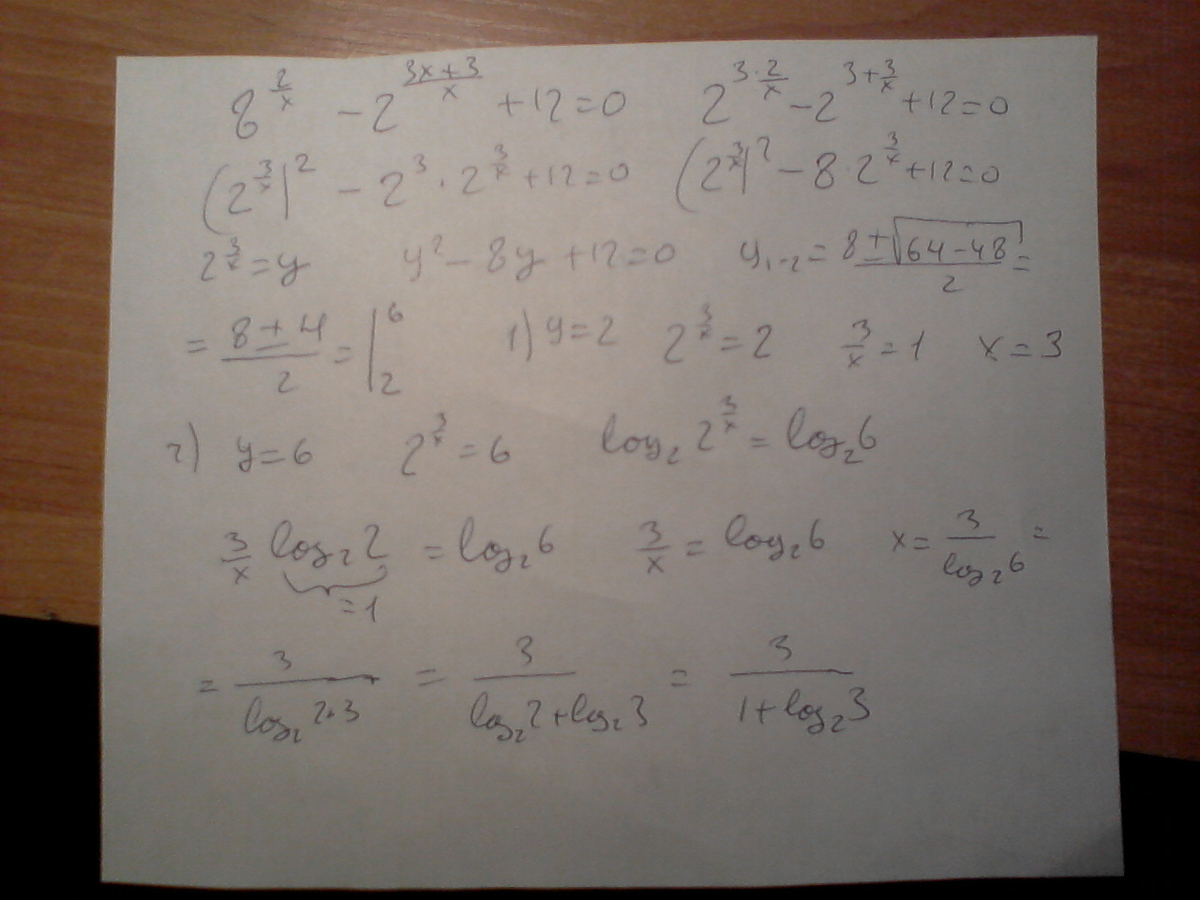 8^(2/x) − 2^((3x+3)/x) + 12 = 0   2^(3·2/x) − 2^(3+3/x) + 12 = 0
(2^(3/x))^2 − 2^3 · 2^(3/x) + 12 = 0   (2^(3/x))^2 − 8·2^(3/x) + 12 = 0
2^(3/x) = y   y^2 − 8y + 12 = 0   y_(1-2) = (8 ± √(64−48))/2 =
= (8 ± 4)/2 = | 6 2   1) y = 2   2^(3/x) = 2   3/x = 1   x = 3
2) y = 6   2^(3/x) = 6   log_2 2^(3/x) = log_2 6
3/x log_2 2 = log_2 6   3/x = log_2 6   x = 3/(log_2 6) =
= 1
= 3/(log_2 2*3) = 3/(log_2 2 + log_2 3) = 3/(1 + log_2 3)